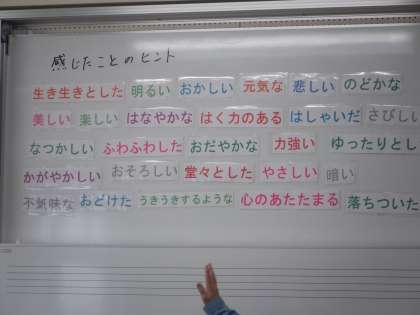 感じたことのヒント
生き生きとした 明るい おかしい 元気な 悲しい のどかな
美しい 楽しい はなやかな はく力のある はしゃいだ さびし
なつかしい ふわふわした おだやかな 力強い ゆったりとし
かがやかしい おそろしい 堂々とした やさしい 暗い
不気味な おどけた うきうきするような 心のあたたまる 落ちついた